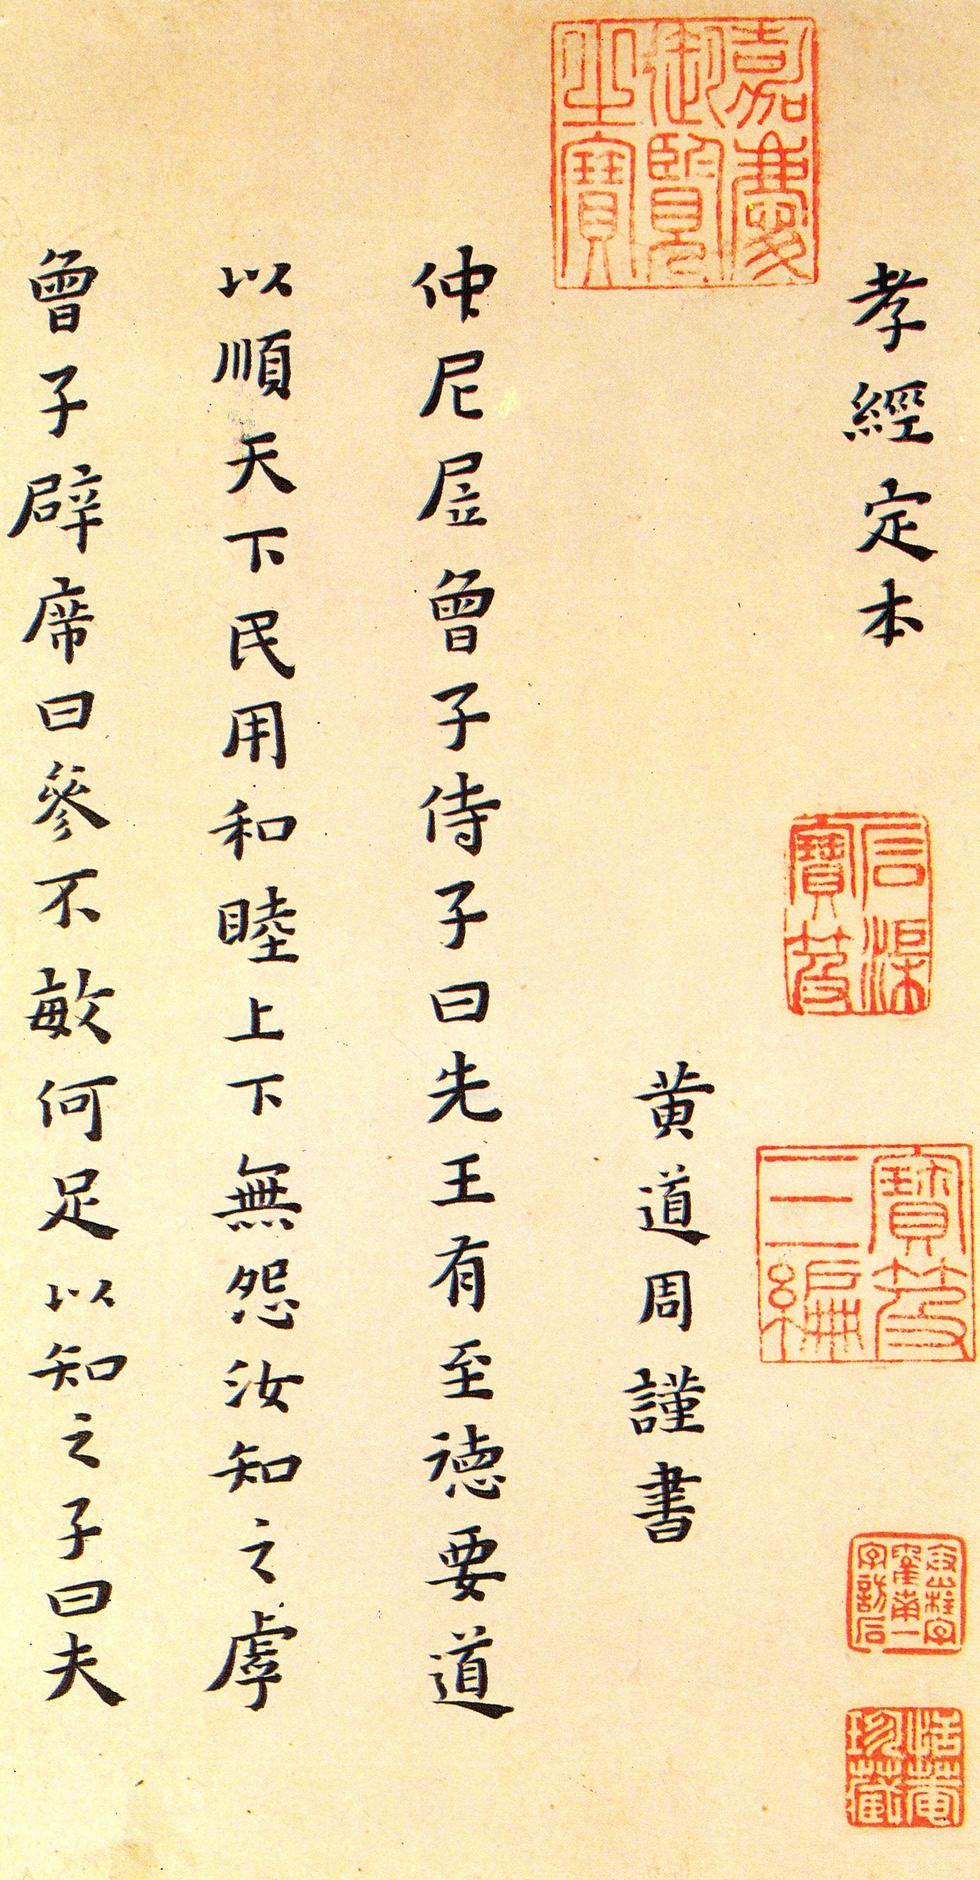 孝經定本
嘉慶
御覽
之寶
石渠
寶笈
寶笈
三編
黃道周謹書
仲尼凥曾子侍子曰先王有至德要道
以順天下民用和睦上下無怨汝知之虖
曾子辟席曰參不敏何足以知之子曰夫
恬菴
珍藏